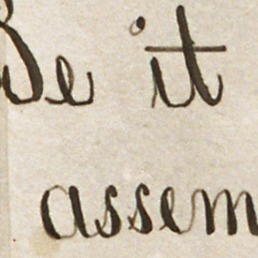 Be it
assem